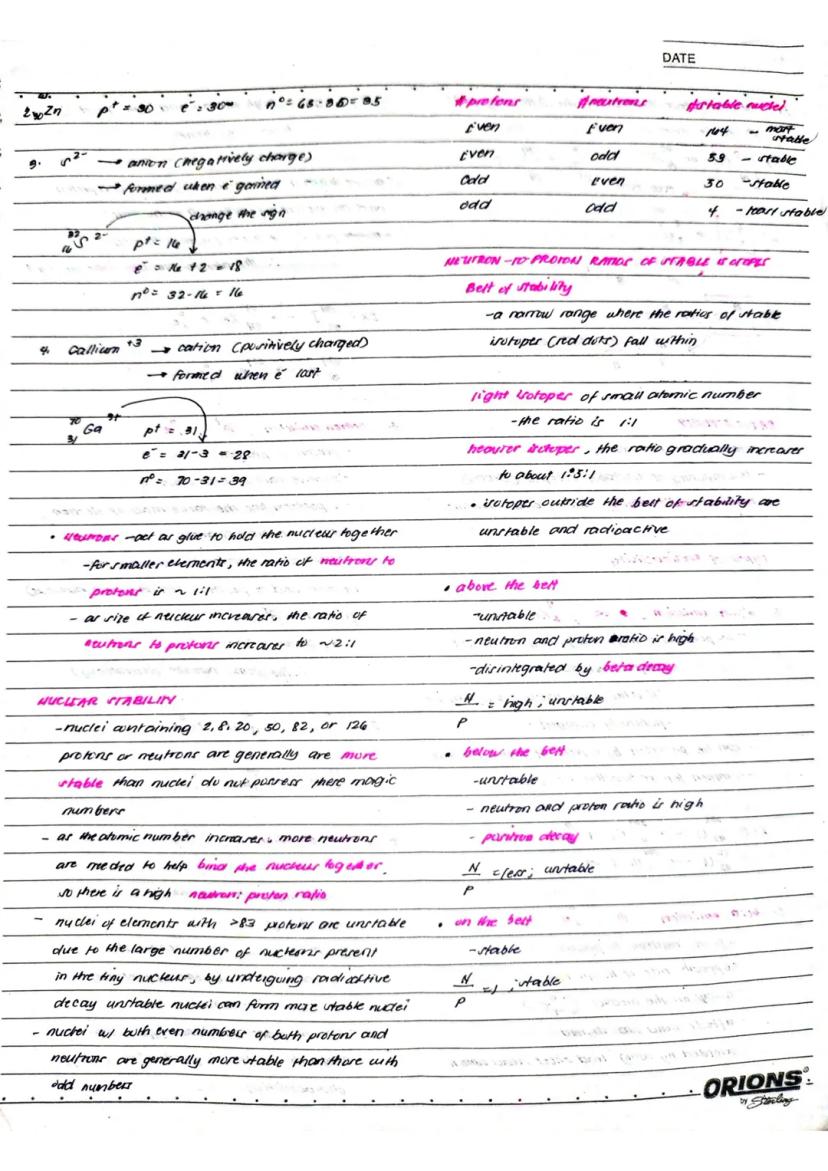 DATE
2. 30Zn p+ = 30 e- = 30 n° = 65-30 = 35
3. S2- → anion (negatively charge)
→ formed when e- gained
change the sign
32 16 S 2- p+ = 16
e- = 16 + 2 = 18
n° = 32-16 = 16
4. Gallium +3 → cation (positively charged)
→ formed when e- lost
70 31 Ga 3+ p+ = 31
e- = 31-3 = 28
n° = 70-31 = 39
• neutrons - act as glue to hold the nucleus together
- for smaller elements, the ratio of neutrons to
protons is ~ 1:1
- as size of nucleus increases, the ratio of
neutrons to protons increases to ~2:1
NUCLEAR STABILITY
- nuclei containing 2, 8, 20, 50, 82, or 126
protons or neutrons are generally are more
stable than nuclei do not possess these magic
numbers
- as the atomic number increases, more neutrons
are needed to help bind the nucleus together,
so there is a high neutron: proton ratio
- nuclei of elements with >83 protons are unstable
due to the large number of nucleons present
in the tiny nucleus, by undergoing radioactive
decay unstable nuclei can form more stable nuclei
- nuclei w/ both even numbers of both protons and
neutrons are generally more stable than those with
odd numbers
#protons #neutrons #stable nuclei
Even Even 164 - most stable
Even odd 53 - stable
Odd Even 50 - stable
odd Odd 4 - least stable
NEUTRON-TO-PROTON RATIOS OF STABLE ISOTOPES
Belt of stability
- a narrow range where the ratios of stable
isotopes (red dots) fall within
light isotopes of small atomic number
- the ratio is 1:1
heavier isotopes, the ratio gradually increases
to about 1.5:1
• isotopes outside the belt of stability are
unstable and radioactive
• above the belt
- unstable
- neutron and proton ratio is high
- disintegrated by beta decay
N/P = high ; unstable
• below the belt
- unstable
- neutron and proton ratio is high
- positron decay
N/P < less ; unstable
• on the belt
- stable
N/P = 1 ; stable
ORIONS
by Sterling